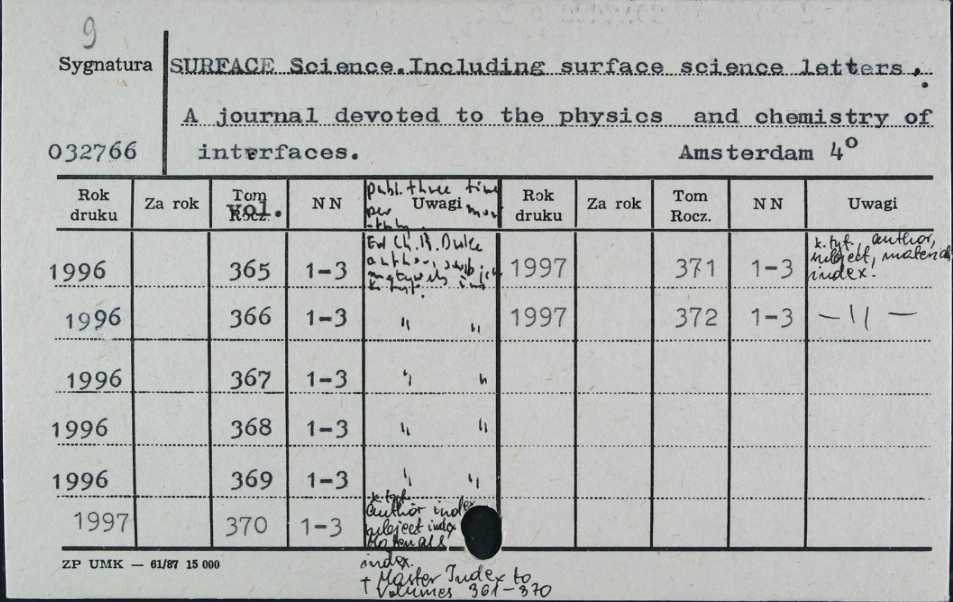 9
Sygnatura SURFACE Science.Including surface science letters.
A journal devoted to the physics and chemistry of
032766 interfaces. Amsterdam 4°
Rok druku Za rok Tom Rocz. Vol. NN Uwagi publ. three time per Rok druku Za rok Tom Rocz. NN Uwagi
1996 365 1-3 Ed Ch. B. Duke author, k. tyt. 1997 371 1-3 k. tyt. author, subject, materials index.
1996 366 1-3 " " 1997 372 1-3 — " —
1996 367 1-3 " "
1996 368 1-3 " "
1996 369 1-3 " "
1997 370 1-3 k. tyt. author index subject index Materials index.
+ Master Index to
Volumes 361-370
ZP UMK — 61/87 15 000